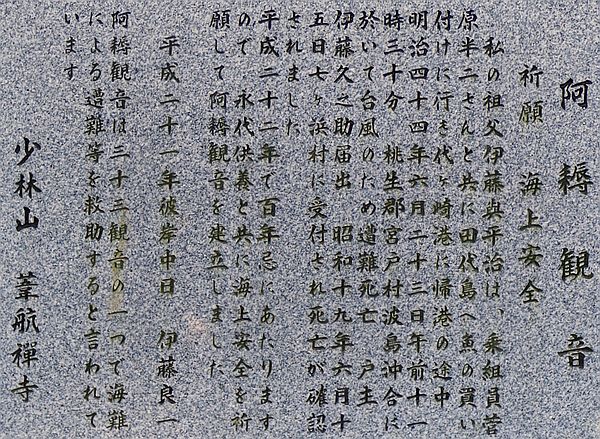 阿耨観音
祈願 海上安全
私の祖父伊藤與平治は、乗組員菅
原半二さんと共に田代島へ魚の買い
付けに行き代ヶ崎港に帰港の途中
明治四十四年六月二十三日午前十一
時三十分 桃生郡宮戸村波島沖合に
於いて台風のため遭難死亡 戸主
伊藤久之助届出 昭和十九年六月十
五日七ヶ浜村に受付され死亡が確認
されました
平成二十二年で百年忌にあたります
ので 永代供養と共に海上安全を祈
願して阿耨観音を建立しました
平成二十一年彼岸中日 伊藤良一
阿耨観音は三十三観音の一つで海難
による遭難等を救助すると言われて
います
少林山 葦航禅寺